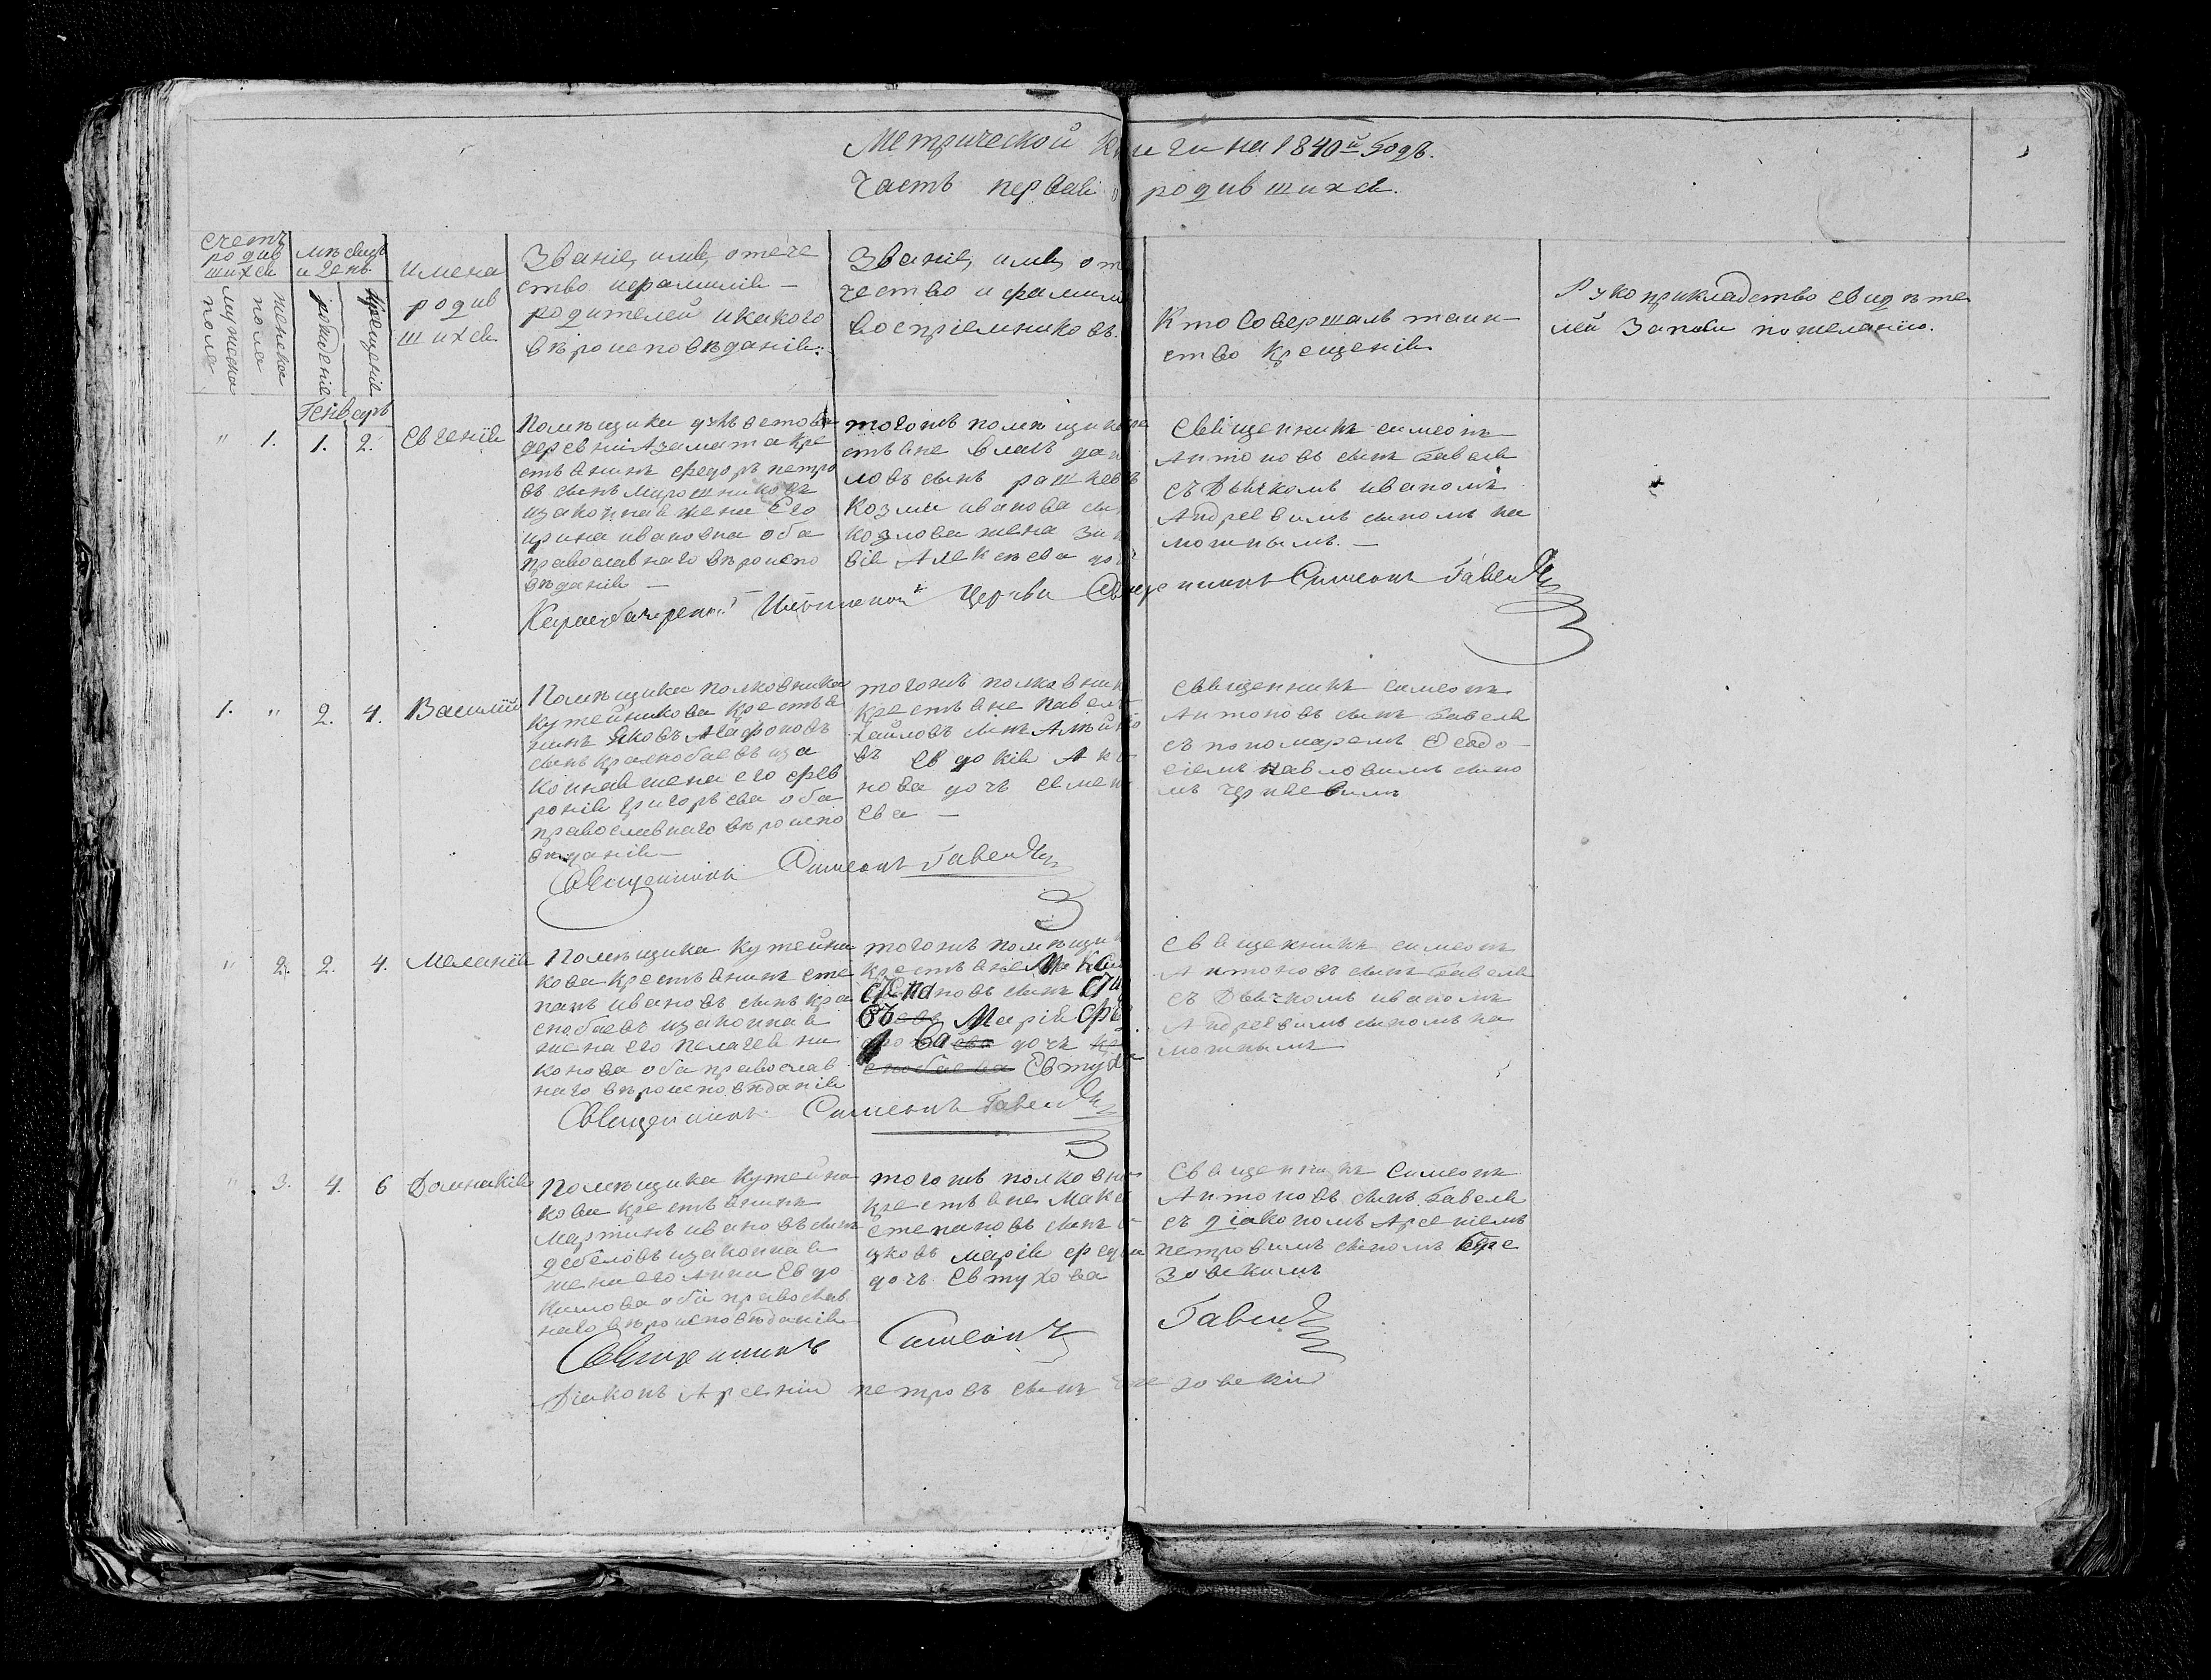 Метрической книги на 1840й Годъ.
Часть первая о родившихся.
счетъ
родив
шихся
мужеска
пола
женска
пола
мѣсяцъ
и День
рожденія
крещенія
имена
родив
шихся
Званіе, имя, отече
ство ифамилія
родителей икакого
вѣроисповѣданія.
Званіе, имя, от
чество и фамилі
воспріемниковъ.
Кто Совершалъ таин-
ство крещенія
Рукоприкладство свидѣте
лей записи пожеланію.
Генварь
" 1. 1. 2. Евгенія
Помѣщика
деревни Азамата кре
стьянинъ федоръ петро
въ сынъ Мирошниковъ
изаконная жена Его
ирина ивановна оба
православнаго вѣроиспо
вѣданія
тогожъ помѣщика
стьяне власъ дан
ловъ сынъ
Козми иванова
Козлова жена
вія Алексѣева доч
Священникъ симеонъ
Антоновъ сынъ Гавеля
съ Дьячкомъ иваномъ
Андреевимъ сыномъ на
мотнымъ.
Церкви Священникъ Симеонъ Гавеля
1. " 2. 4. Василій
Помѣщика полковника
Кутейникова крестья
нинъ Яковъ Агафоновъ
сынъ краснобаевъ иза
конная жена его фев
ронія григорьева оба
православнаго вѣроиспо
вѣданія
тогожъ полковник
крестьяне павелъ
хайловъ сынъ
въ Евдокія
нова дочъ семен
ева
священникъ симеонъ
Антоновъ сынъ Гавеля
съ пономаремъ Феодо-
сіемъ павловимъ сыно
мъ
Священникъ Симеонъ Гавеля
" 2. 2. 4. Меланія
Помѣщика Кутейни
кова крестьянинъ сте
панъ ивановъ сынъ кра
снобаевъ изаконная
жена его пелагея ни
конова оба православ
наго вѣроисповѣданія
тогожъ помѣщик
крестьяне Макси
Степановъ сынъ
въ Марія Фе
ва дочъ
снобаева Евтух
священникъ симеонъ
Антоновъ сынъ Гавеля
съ Дьячкомъ иваномъ
Андреевимъ сыномъ на
мотнымъ
Священникъ Симеонъ Гавеля
" 3. 4. 6 Домникія
Помѣщика Кутейни
кова крестьянинъ
Мартинъ ивановъ сынъ
дебеловъ изаконная
жена его Анна Евдо
кимова оба православ
наго вѣроисповѣданія
тогожъ полковни
крестьяне Макс
степановъ сынъ
Марія федо
дочъ Евтухова
Священникъ Симеонъ
Антоновъ сынъ Гавеля
съ діакономъ Арсеніемъ
петровимъ сыномъ Бре
зовскимъ
Священникъ Симеонъ Гавеля
Діаконъ Арсеній петровъ сынъ Брезовскій